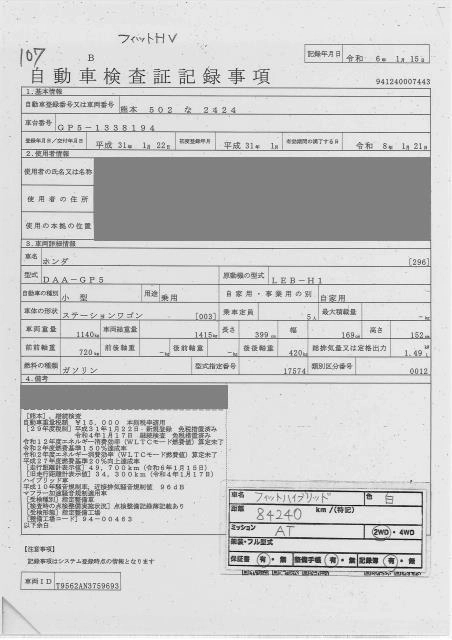 フィットHV
107
B
記録年月日 令和 6年 1月 15日
自動車検査証記録事項
941240007443
1.基本情報
自動車登録番号又は車両番号 熊本 502 な 2424
車台番号 GP5-1338194
登録年月日/交付年月日 平成 31年 1月 22日 初度登録年月 平成 31年 1月 有効期間の満了する日 令和 8年 1月 21日
2.使用者情報
使用者の氏名又は名称
使用者の住所
使用の本拠の位置
3.車両詳細情報
車名 ホンダ [296]
型式 DAA-GP5 原動機の型式 LEB-H1
自動車の種別 小型 用途 乗用 自家用・事業用の別 自家用
車体の形状 ステーションワゴン [003] 乗車定員 5人 最大積載量 -kg
車両重量 1140kg 車両総重量 1415kg 長さ 399cm 幅 169cm 高さ 152cm
前前軸重 720kg 前後軸重 -kg 後前軸重 -kg 後後軸重 420kg 総排気量又は定格出力 1.49L
燃料の種類 ガソリン 型式指定番号 17574 類別区分番号 0012
4.備考
[熊本],継続検査
自動車重量税額 ¥15,000 本則税率適用
[29年度税制]平成31年1月22日 新規登録 免税措置済み
令和4年1月17日 継続検査 免税措置済み
令和12年度エネルギー消費効率(WLTCモード燃費値)算定未了
令和2年度燃費基準150%達成車
令和2年度エネルギー消費効率(WLTCモード燃費値)算定未了
平成27年度燃費基準20%向上達成車
[走行距離計表示値]49,700km(令和6年1月15日)
[旧走行距離計表示値]34,300km(令和4年1月17日)
ハイブリッド車
平成10年騒音規制車,近接排気騒音規制値 96dB
マフラー加速騒音規制適用車
[受検種別]指定整備車
[検査時の点検整備実施状況]点検整備記録簿記載あり
[受検形態]指定整備工場
[整備工場コード]94-00463
以下余白
車名 フィットハイブリッド 色 白
距離 84240 km/(特記)
ミッション AT 2WD・4WD
架装・フル型式
保証書 有・無 整備手帳 有・無 記録簿 有・無
【注意事項】
記録事項はシステム登録時点の情報となります
車両ID T9562AN3759693